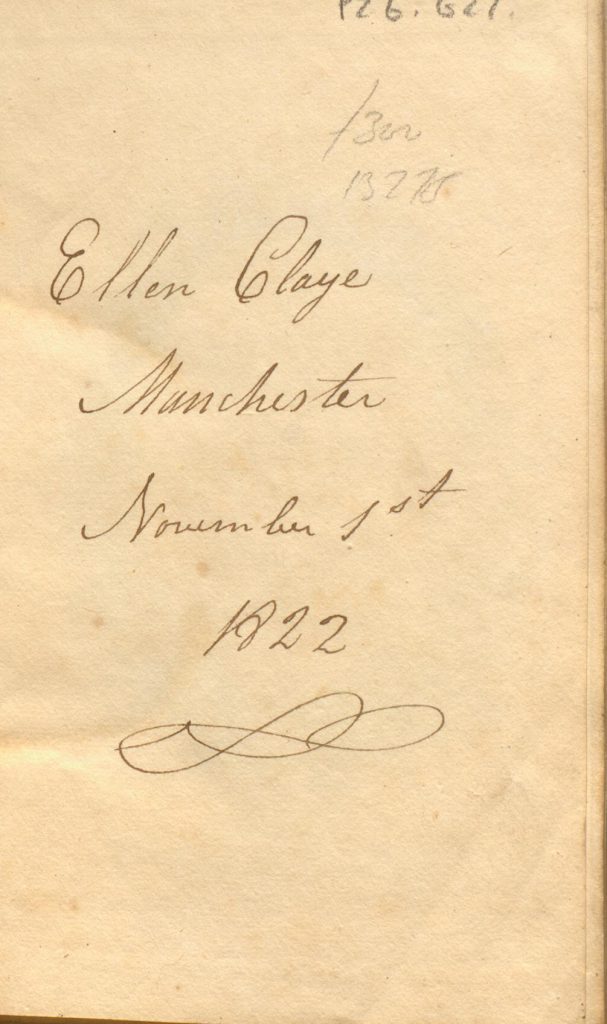 P26. G27.
Ellen Claye
Manchester
November 1st
1822